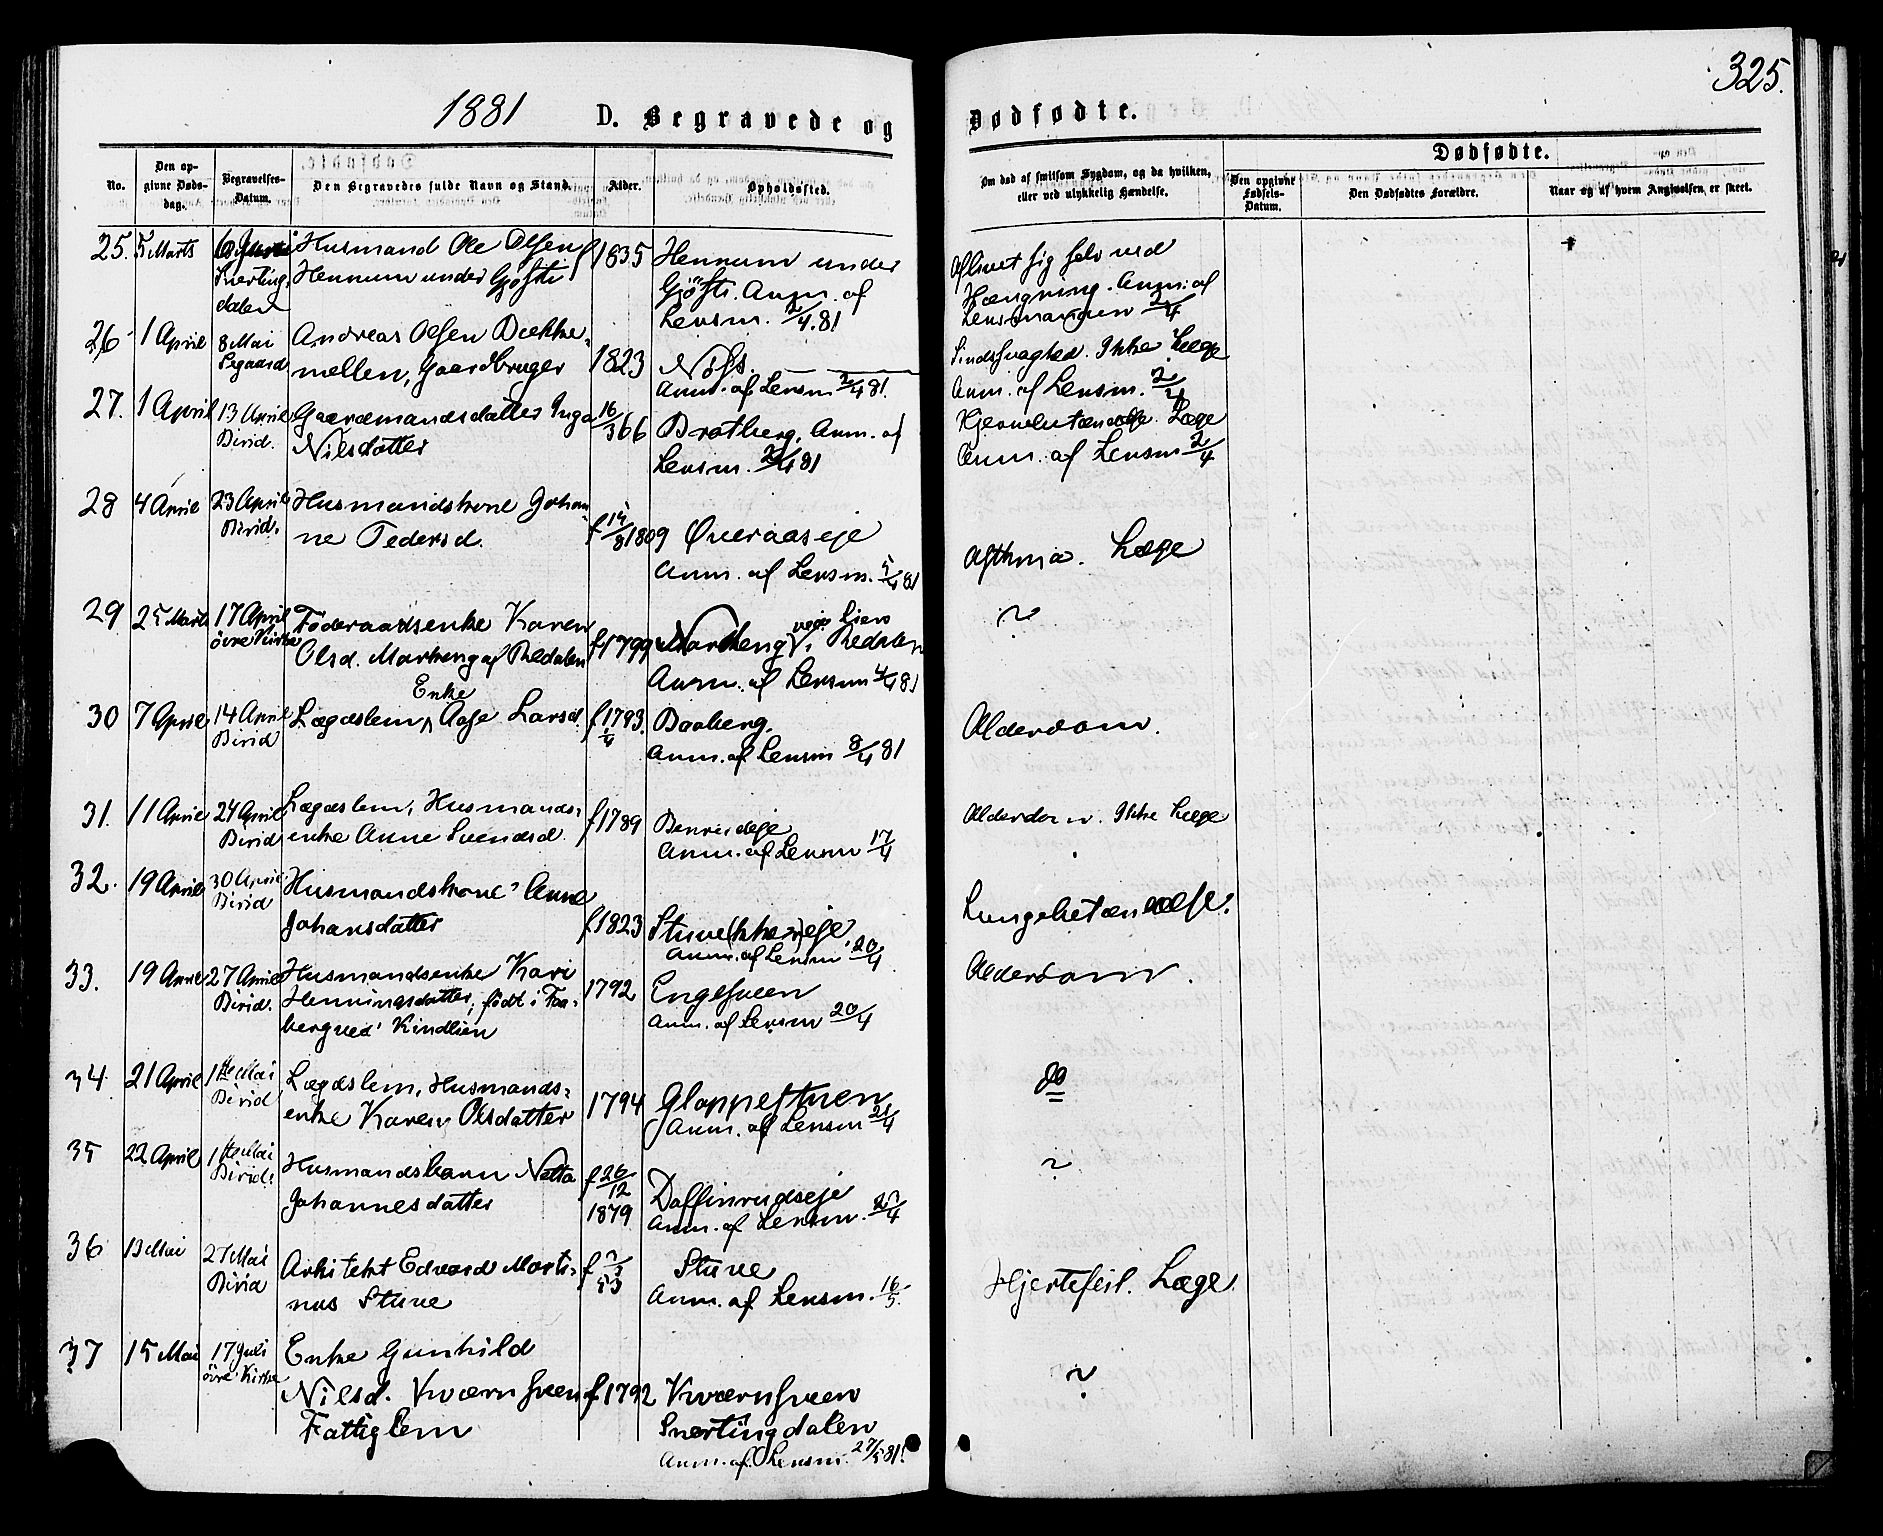 325.
1881 D. Begravede og Dødfødte.
Dødfødte.
No.
Den opgivne Dødsdag.
Begravelses-Datum.
Den Begravedes fulde Navn og Stand.
Alder.
Opholdssted.
Om død af smitsom Sygdom, og da hvilken, eller ved ulykkelig Hændelse.
Den opgivne Fødsels-Datum.
Den Dødfødtes Forældre.
Naar og af hvem Angivelsen er skeet.
25. 5 Marts
Snerting,
dalen
Husmand Ole Olsen
Hennum under Gjøfti
f 1835
Hennum under
Gjöfti. Anm. af
Lensm. 2/4.81
Aflivet sig selv ved
Hængning. Anm. af
Lensmanden 2/4
26 1 April 8 Mai
Segaard
Andreas Olsen Bække,
mellem, Gaardbruger
1823
Nøss.
Anm. af Lensm 2/4 81.
Sindssvaghed. Ikke Læge
Anm. af Lensm. 2/4
27. 1 April 13 April
Birid.
Gaardmandsdatter Inga
Nilsdatter
16/3 66
Bratberg. Anm. af
Lensm. 2/4 81
Hjernebetændelse. Læge
Anm. af Lensm 2/4
28 4 April 23 April
Birid.
Husmandskone Johan
ne Pedersd.
f 14/8 1809
Øveraaseje
Anm. af Lensm. 5/4 81
Asthma. Læge
29 25 Marts 17 April
övre Kirke
Föderaadsenke Karen
Olsd. Markeng af Redalen
f 1799
Markeng i Redalen
Anm. af Lensm 4/4 81
?
30 7 April 14 April
Birid
Enke
Lægdslem Aase Larsd.
f 1793.
Baaberg.
Anm. af Lensm 8/4 81
Alderdom.
31. 11 April 24 April
Birid
Lægdslem, Husmands,
enke Anne Svendsd.
f 1789
Anm. af Lensm 17/4
Alderdom. Ikke Læge
32. 19 April 30 April
Birid
Husmandskone Anne
Johansdatter
f 1823
Stuve(kke)eje
Anm. af Lensm. 20/4
Lungebetændelse.
33. 19 April 27 April
Birid.
Husmandsenke Kari
Henningsdatter, født i Faa,
berg ved Kindlien
1792
Engesveen
Anm. af Lensm 20/4
Alderdom.
34. 21 April 1ste Mai
Birid
Lægdslem, Husmands,
enke Karen Olsdatter
1794
Gloppestuen
Anm. af Lensm 21/4
do
35 22 April 1ste Mai
Birid.
Husmandsbarn Netta
Johannesdatter
f 26/12
1879
Daffinrudseje
Anm. af Lensm. 25/4
?
36 13 Mai 27 Mai
Birid
Arkitekt Edvard Marti,
nus Stuve
f
53
Stuve
Anm. af Lensm. 16/5.
Hjertefeil. Læge.
37 15 Mai 17 Juli
övre Kirke
Enke Gunhild
Nilsd. Kværnsveen
Fattiglem
f 1792
Kværnsveen
Snertingdalen
Anm. af Lensm. 27/5 81.
?